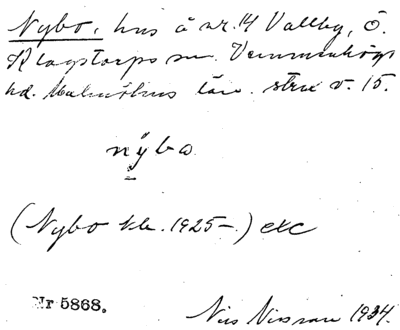 Nybo, hus å nr. 14 Vallby, Ö.
Klagstorps sn. Vemmenhögs
hd. Malmöhus län.
nybo
(Nybo kb. 1925–) exc
Nr 5868. Nils Nilsson 1934.